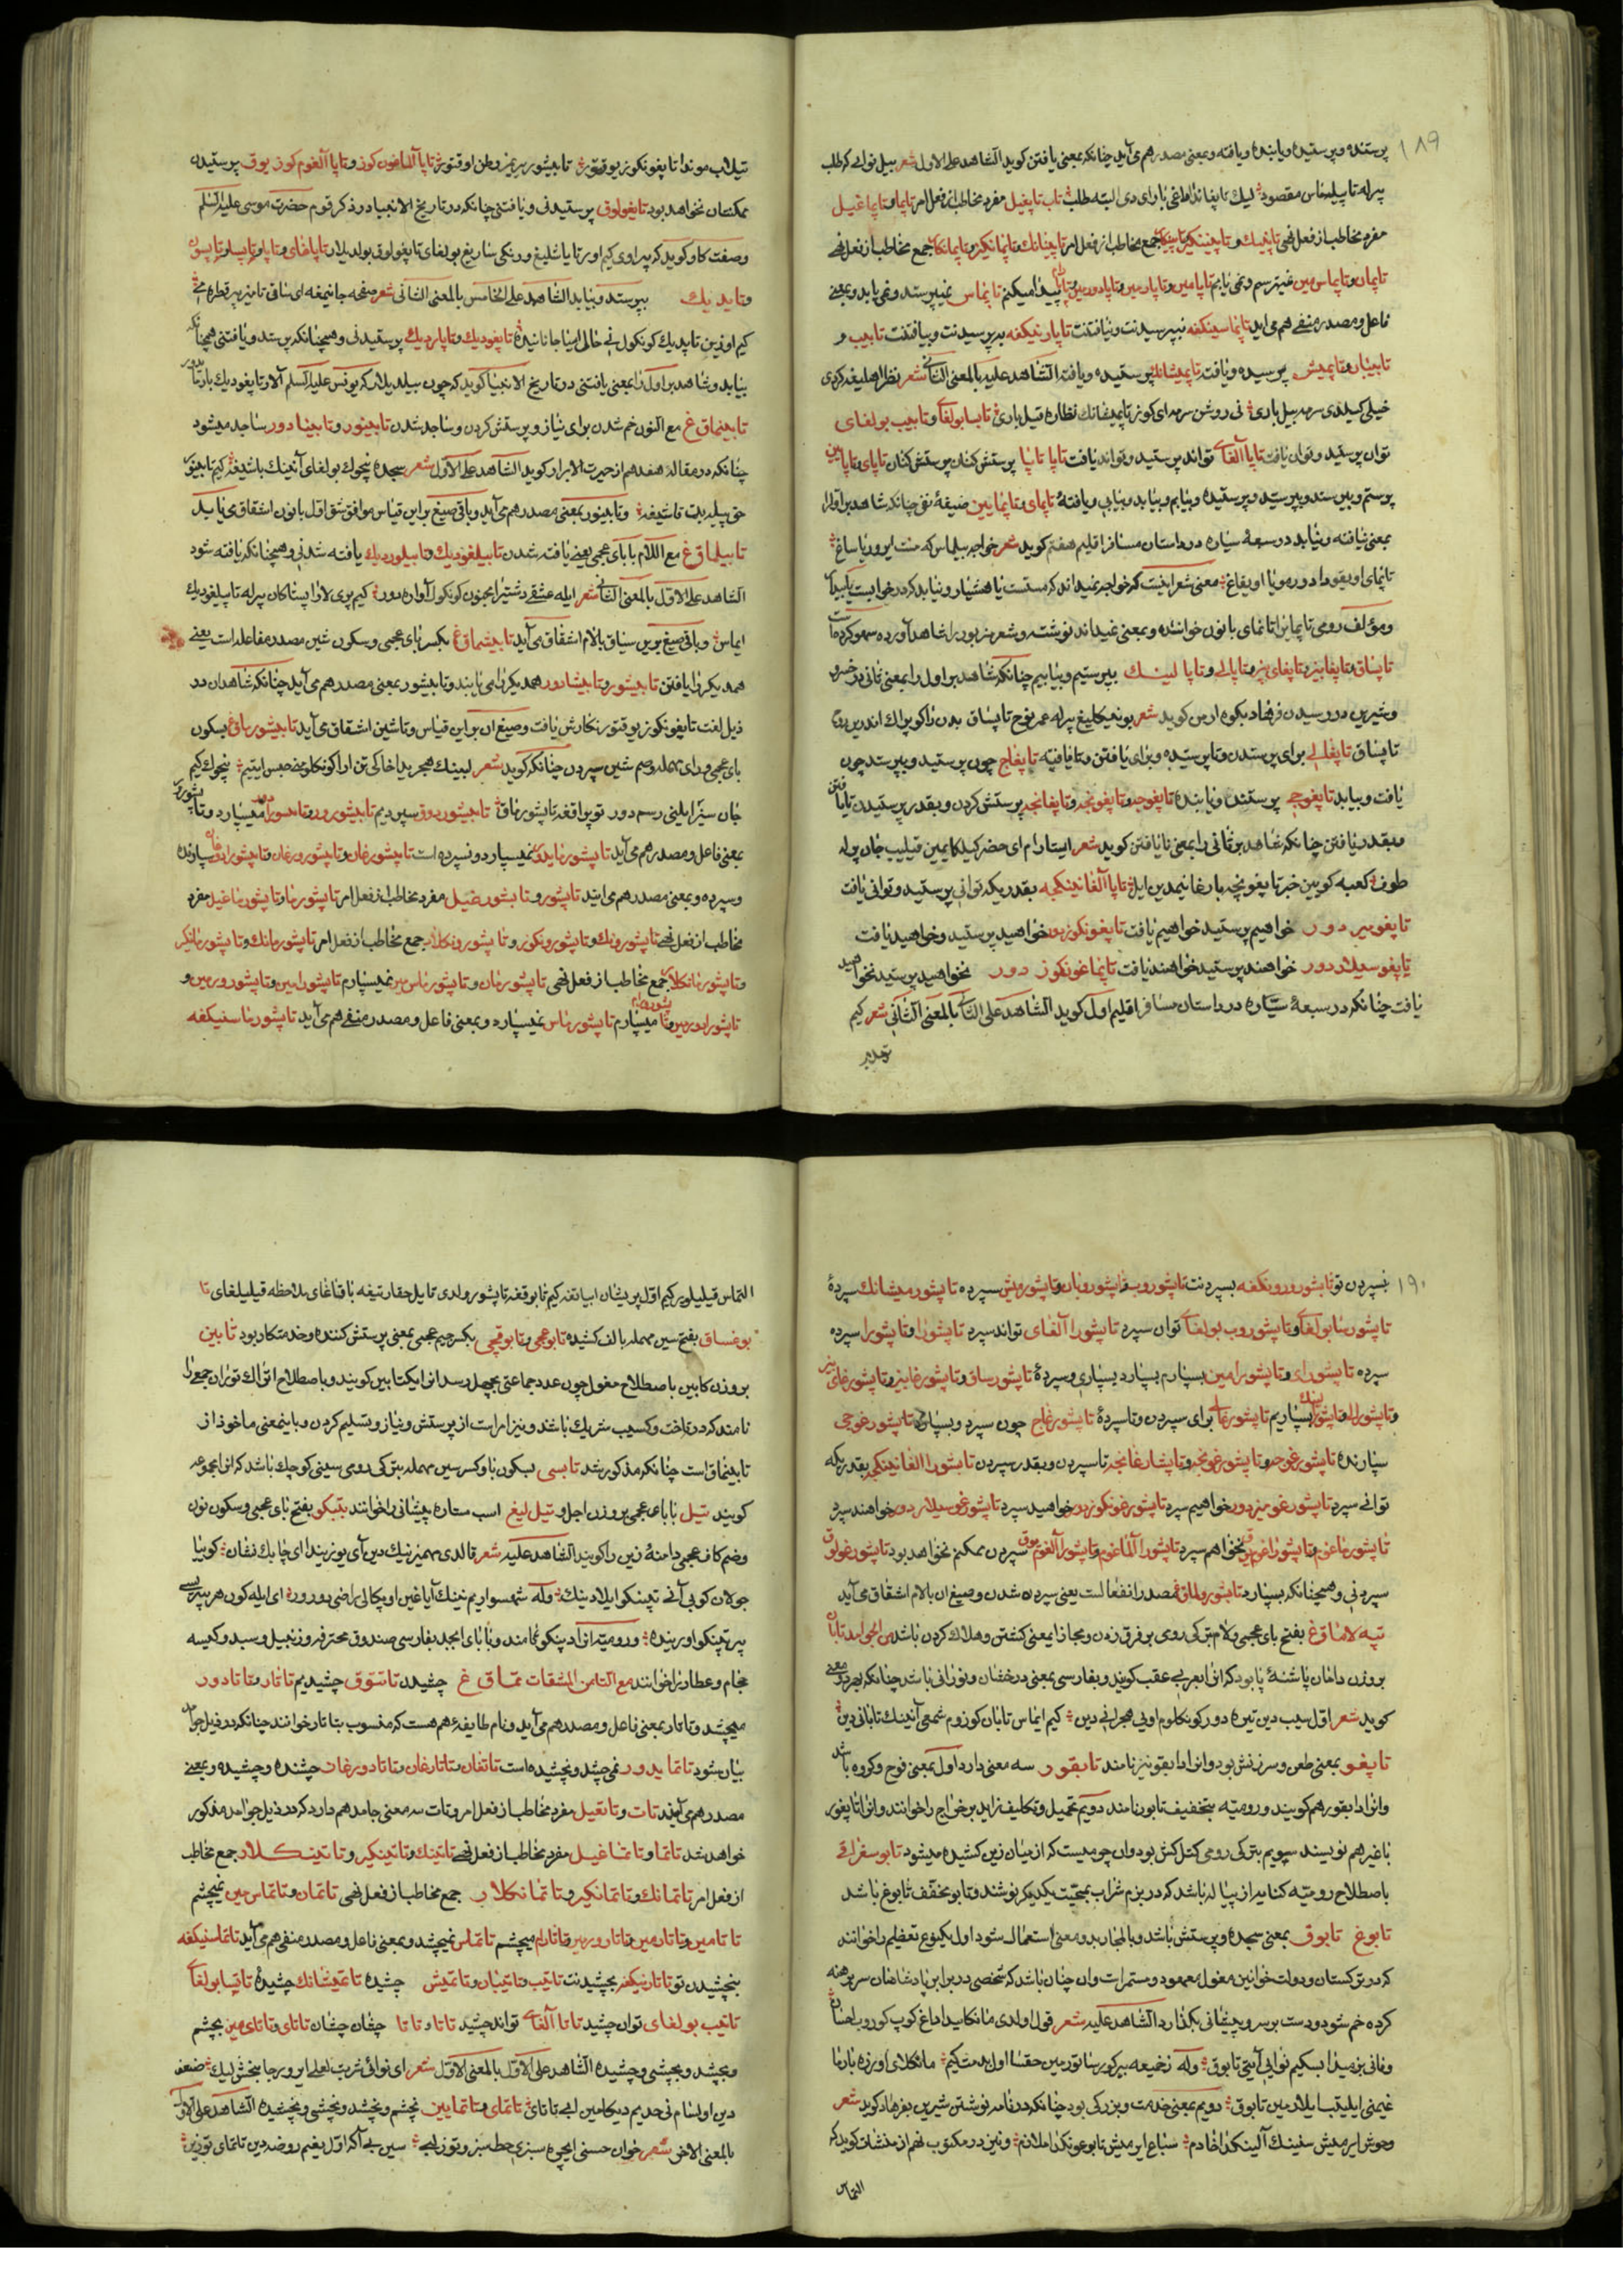 ١٨٩
پرستنده و پرستیده و یابنده و یافته و بمعنی مصدر هم می آید چنانکه بمعنی یافتن کوید الشاهد علی الاول شعر بیل نوایی کر طلب
پیرله تاپیلماس مقصود لیک تاپغاند اطلغی بارای دی البته طلب تاب تاپغیل مفرد مخاطب از فعل امر تاپما و تاپماغیل
مفرد مخاطب از فعل نهی تاپینک و تاپینکیز جمع مخاطب از فعل امر تاپمانک و تاپمانکیز و تاپمانکلار جمع مخاطب از فعل نهی
تاپمان و تاپماس من نمیپرستم و نمی یابم تاپامین و تاپارمین و تاپادورمین پیدا میکنم تاپماس نمیپرستد و نمی یابد و بمعنی
فاعل و مصدر منفی هم می آید تاپماسینکغه نپرسیدنت و نیافتنت تاپارینکغه بپرسیدنت و بیافتنت تاپیب و
تاپیبان و تاپمیش پرسیده و یافته تاپمیشانک پرستیده و یافته الشاهد علیه بالمعنی الثانی شعر نظر اهلیغه کردی
خیلی کیلدی سرمه بیل باری نی روشن سرمه ای کوز تاپمیشانک نظاره قیل باری تابسا بولغای و تاپیب بولغای
توان پرستید و توان یافت تاپا آلغای تواند پرستید و تواند یافت تاپا تاپا پرستش کنان پرستش کنان تاپای و تاپایین
پرستم و بپرستد و پرستیده و بیابم و بیابد و بیابی و یافته تاپمای و تاپمایین صیغه نفی چنانکه شاهد بر اول را
بمعنی نیافته و نیابد در سبعه سیاره در داستان مسافر اقلیم هفتم کوید شعر خواجه بیلماس که مست ایرور یا ساغ
تاپمای اویقودا دور مو یا اویغاغ معنی شعر اینست که خواجه نمیداند که مستست یا هشیار و نیابد که در خوابست یا بیدار
و مؤلف رومی تاپمای را تانمای با نون خوانده و بمعنی نمیداند نوشته و شعر مزبور را شاهد آورده سهو کرده است
تاپساق و تاپغابیز و تاپغای بیز و تاپالی و تاپالینک بپرستیم و بیابیم چنانکه شاهد بر اول را بمعنی ثانی در خسرو
و شیرین در رسیدن فرهاد بکوه ارمن کوید شعر بو نیکلیغ پیرله عمر نوح تاپساق بدن را کوپراک اندین
تاپساق تاپغالی برای پرستدن و تا پرستیده و برای یافتن و تا یافته تاپغاج چون پرستید و بپرستد چون
یافت و بیابد تاپغوچی پرستنده و یابنده تاپغوچه و تاپغونچه و تاپغانچه پرستش کردن و بقدر پرستیدن تا یافتن
و بقدر یافتن چنانکه شاهد بر ثانی را بمعنی تا یافتن کوید شعر ایستارام ای خضر کیلکایمین قیلیب جان پیرله
طوف کعبه کویین خبر تاپغونچه بارغانیمدین ایل تاپا آلغانینکچه بقدریکه توانی پرستید و توانی یافت
تاپغومیز دور خواهیم پرستید خواهیم یافت تاپغونکوز دور خواهید پرستید و خواهید یافت
تاپغوسیلار دور خواهند پرستید خواهند یافت تاپماغونکوز دور نخواهید پرستید نخواهید
یافت چنانکه در سبعه سیاره در داستان مسافر اقلیم اول کوید الشاهد علی الثانی بالمعنی الثانی شعر کیم
تیلاب موندا تاپغونکوز یوقتور تاپیشور بیر یمز وطن اوقتور تاپا آلماغون کوز و تاپا آلغوم کوز یوق پرستیدن
ممکنتان نخواهد بود تاپغولوق پرستیدنی و یافتنی چنانکه در تاریخ الانبیا در ذکر قوم حضرت موسی علیه السلم
صفت کاو کوید که پیراوی کیم اورتا یاشلیغ و رنکی ساریغ بولغای تاپغولوق بولدیلار تاپاغای و تاپار و تاپسا و تاپسون
و تاپدیک بپرستد و بیابد الشاهد علی الخامس بالمعنی الثانی شعر صفحه جانیمغه ای ساقی تامیزیر قطره می
کیم اوزین تاپدیک کونکول نی خالی ایتیا جانانیده تاپغودیک و تاپاردیک پرستیدنی و همچنانکه پرستد و یافتنی همچنانکه
بیابد و شاهد بر اول را بمعنی یافتنی در تاریخ الانبیا کوید که چون بیلدیلار که یونس علیه السلم آلار تاپغودیک بارماید
تاپینماق غ مع النون خم شدن برای نیاز و پرستش کردن و ساجد شدن تاپینور و تاپینادور ساجد میشود
چنانکه در مقاله هفدهم از حیرت الابرار کوید الشاهد علی الاول شعر سجده نیچوک بولغای آنینک باشیغه کیم تاپینور
حق بیله بت قاشیغه و تاپینور بمعنی مصدر هم می آید و باقی صیغ بر این قیاس موافق شق اول بانون اشقاق می یابد
تاپیلماق غ مع اللام با بای عجمی یعنی یافته شدن تاپیلغودیک و تاپیلوردیک یافته شدنی و همچنانکه یافته شود
الشاهد علی الاول بالمعنی الثانی شعر ایله عشقی دشتیدا مجنون کونکول آواره دور کیم پری لار ایستاکان پیرله تاپیلغودیک
ایماس و باقی صیغ بر این سیاق بالام اشقاق می آید تاپیشماق غ بکسر بای عجمی و سکون شین مصدر مفاعله است یعنی
همدیکر را یافتن تاپیشور و تاپیشادور همدیکر را می یابند و تاپیشور بمعنی مصدر هم می آید چنانکه شاهد ان در
ذیل لغت تاپغونکوز یوقتور نکارش یافت و صیغ ان بر این قیاس و تاشین اشقاق می آید تاپشورماق غ بسکون
بای عجمی و رای مهمله و ضم شین سپردن چنانکه کوید شعر لبینک هجریدا خاکی تن ارا کونکلومنی حبس ایتیم نیچوک کیم
جان سیزا یلینی رسم دور توپراقغه تاپشورماق تاپشوردوق سپردیم تاپشورور و تاپشورادور میسپارد و تاپشورور
بمعنی فاعل و مصدر هم می آید تاپشورمایدور نمیسپارد و نسپرده است تاپشورغان و تاپشورورغان و تاپشورادورغان سپارنده
و سپرده و بمعنی مصدر هم می آیند تاپشور و تاپشورغیل مفرد مخاطب از فعل امر تاپشورما و تاپشورماغیل مفرد
مخاطب از فعل نهی تاپشورونک و تاپشورونکوز و تاپشورونکلار جمع مخاطب از فعل امر تاپشورمانک و تاپشورمانکیز
و تاپشورمانکلار جمع مخاطب از فعل نهی تاپشورمان و تاپشورماس من نمیسپارم تاپشورامین و تاپشورورمین و
تاپشورادورمین و تاپشورورام میسپارم تاپشورماس نمیسپارد و بمعنی فاعل و مصدر منفی هم می آید تاپشورماسینکغه
تیلاب
١٩٠
نسپردن تو تاپشورورونکغه بسپردنت تاپشوروب و تاپشوروبان و تاپشورمیش سپرده تاپشورمیشانک سپرده
تاپشورسا بولغای و تاپشوروب بولغای توان سپرد تاپشورا آلغای تواند سپرد تاپشورا و تاپشورا سپرده
سپرده تاپشورای و تاپشورایین بسپارم بسپارد بسپاری و سپرده تاپشورساق و تاپشورغابیز و تاپشورغای بیز
و تاپشورالی و تاپشورالینک بسپاریم تاپشورغالی برای سپردن و تا سپرده تاپشورغاج چون سپرد و بسپارد تاپشورغوچی
سپارنده تاپشورغوچه و تاپشورغونچه و تاپشارغانچه تا سپردن و بقدر سپردن تاپشورا الغانینکچه بقدریکه
توانی سپرد تاپشورغومیز دور خواهیم سپرد تاپشورغونکوز دور خواهید سپرد تاپشورغوسیلار دور خواهند سپرد
تاپشورماغوم و تاپشوراغوم یوق نخواهم سپرد تاپشورا آلماغوم و تاپشورا آلغوم یوق سپردن ممکنم نخواهد بود تاپشورغولوق
سپردنی و همچنانکه بسپارد تاپشورولماق غ مصدر انفعالست یعنی سپرده شدن و صیغ ان بالام اشقاق می آید
تپه لاماق غ بفتح بای عجمی و لام بترکی روی بر فرق زدن و مجازا بمعنی کشتن و هلاک کردن باشد من الجوامد تابان
بر وزن دامان پاشنه پا بود که انرا بعربی عقب کویند و بفارسی بمعنی درخشان و نورانی باشد چنانکه بهر دو معنی
کوید شعر اول سبب دین تیره دور کونکلوم اویی هجرانی دین کیم ایماس تابان کوزوم شمعی آنینک تابانی دین
تاپغو بمعنی طعن و سرزنش بود و انرا دابقو نیز نامند تابقور سه معنی دارد اول بمعنی فوج و کروه باشد
و انرا دابقور هم کویند و رومیه بتخفیف تابور نامند دویم تحمیل و تکالیف زاید بر خواج را خوانند و انرا تاپغور
با غیر هم نویسند سیویم بترکی رومی کتل کش بود و ان چرمیست که از میان زین کشیده میشود تابوسغراقی
باصطلاح رومیه کنایه از پیاله باشد که در بزم شراب بمحبت یکدیکر نوشند و تابو مخفف تابوغ باشد
تابوغ تابوق بمعنی سجده و پرستش باشد و بالمجاز بدو معنی استعمال شود اول یکنوع تعظیم را خوانند
که در ترکستان و دولت خوانین مغول معمود و مستمر است و ان چنان باشد که شخصی در برابر پادشاهان سر برهنه
کرده خم شود و دست بر سر و پیشانی بکذارد الشاهد علیه شعر قول اولدی مانکا بیداغ کوپ کوروب احسان
و فانی بزمیدا بسکیم نوایی ایتی تابوق وله زخیمه بیر کورسا تورمین حقسا اول بدمستکیم مانکلای اورزه بارما
غیمنی ایلیقسایلار مین تابوق دویم بمعنی خدمت و بزرکی بود چنانکه در نامه نوشتن شیرین بفرهاد کوید شعر
وحوش ایرمیش سنینک آلینکدا خادم سباع ایرمیش تابوغونکدا ملازم و نیز در مکتوب نهم از منشات کوید که
التماس قیلیلویر کیم اول پریشان ابیاتغه کیم تابوقغه تاپشورولدی تایل حقارتیغه باقماغای ملاحظه قیلیلغای تا
بوغساق بفتح سین مهمله بالف کشیده تابوغچی و تابوقچی بکسر جیم عجمی بمعنی پرستش کننده و خدمتکار بود تابین
بر وزن کابین باصطلاح مغول چون عدد جماعتی بچهل رسد انرا یکتابین کویند و باصطلاح اتراک توران جمعی را
نامند که در تاخت و کسیب شریک باشد و نیز امر است از پرستش و نیاز و تسلیم کردن و باینمعنی ماخوذ از
تاپینماق است چنانکه مذکور شد تابسی بسکون با و کسر سین مهمله بترکی رومی سینی کوچک باشد که انرا مجوعه
کویند تپل با بای عجمی بر وزن اجل و تپل لیغ اسب ستاره پیشانی را خوانند تپنکو بفتح بای عجمی و سکون نون
و ضم کاف عجمی دامنه زین را کویند الشاهد علیه شعر قالدی مهمیز نینک دین آی یوزیندا ای چابک نشان کوییا
جولان کونی آنی تپینکو ایلادینک وله شهسوار یم نینک آیاغین اوپکالی راضی دورور ای ایله کون هر بیریسی
بیر تپنکو اوریندا و رومیه انرا دپنکو نامند و تابای ابجد بفارسی صندوق محتر فروزنبیل و سبد و کیسه
حجام و عطار را خوانند مع التا من المشتقات تاتماق غ چشیدن تاتتوق چشیدیم تاتار و تاتادور
میچشد و تاتار بمعنی فاعل و مصدر هم می آید و نام طایفه هم هست که منسوب بتاتار خوانند چنانکه در ذیل جوامد
بیان شود تاتمایدور نمی چشد و نچشیده است تاتغان و تاتارغان و تاتادورغان چشنده و چشیده و بمعنی
مصدر هم می آیند تات و تاتغیل مفرد مخاطب از فعل امر و تات سه معنی جامد هم دارد که در ذیل جوامد مذکور
خواهد شد تاتما و تاتماغیل مفرد مخاطب از فعل نهی تاتینک و تاتینکیز و تاتینکلار جمع مخاطب
از فعل امر تاتمانک و تاتمانکیز و تاتمانکلار جمع مخاطب از فعل نهی تاتمان و تاتماس مین نمیچشم
تاتامین و تاتارمین و تاتادورمین و تاتارام میچشم تاتماس نمیچشد و بمعنی فاعل و مصدر منفی هم می آید تاتماسینکغه
بنچشیدن تو تاتارینکغه بچشیدنت تاتیب و تاتیبان و تاتمیش چشیده تاتمیشانک چشیده تاتسا بولغای
تاتیب بولغای توان چشید تاتا آلغای تواند چشید تاتا و تاتا چشان چشان تاتای و تاتای مین بچشم
و بچشد و بچشی و چشیده الشاهد علی الاول بالمعنی الاول شعر ای نوائی شربت لعلی ایرور جان بخش لیک ضعف
دین اولسام نی حدیم دیکامین ایی تاتای تاتمای و تاتمایین نچشم و نچشد و نچشی و نچشیده الشاهد علی الاول
بالمعنی الاخر شعر خوان حسنی ایچره سبزی خط سبز و توز لبی سین بی آکر اول یغیم روضه دین تاتمای توزین
التماس